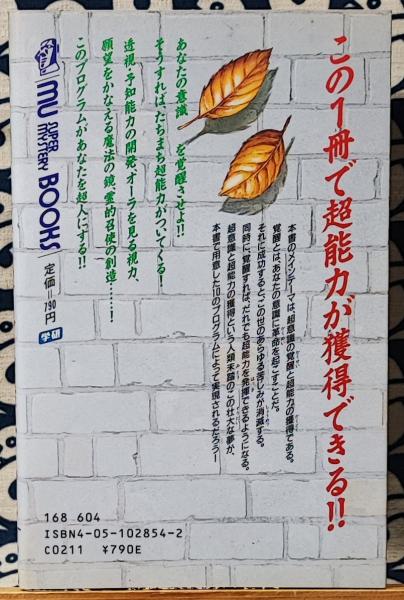 この1冊で超能力が獲得できる!!
本書のメインテーマは、超意識の覚醒と超能力の獲得である。
覚醒とは、あなたの意識に革命を起こすことだ。
それに成功すると、この世のあらゆる苦しみが消滅する。
同時に、覚醒すれば、だれでも超能力を発揮できるようになる。
超意識と超能力の獲得という人類未踏のこの壮大な夢が、
本書で用意した10のプログラムによって実現されるだろう!
あなたの意識を覚醒させよ!!
そうすれば、たちまち超能力がついてくる!
透視・予知能力の開発、オーラを見る視力、
願望をかなえる魔法の鏡、霊的召使の創造……!
このプログラムがあなたを超人にする!!
MU SUPER MYSTERY BOOKS
定価=790円
学研
168 604
ISBN4-05-102854-2
C0211 ¥790E